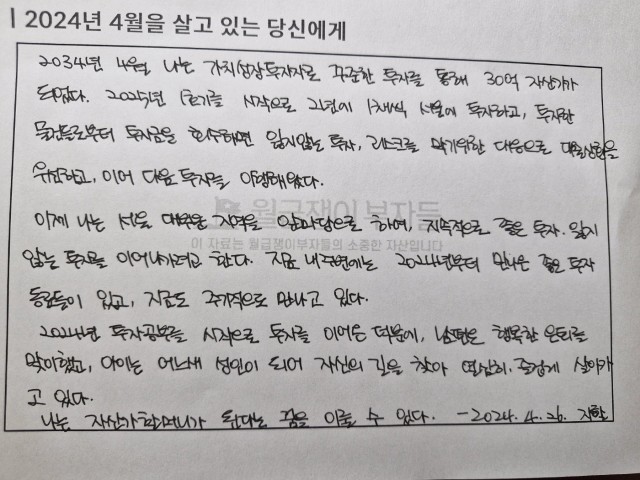 2024년 4월을 살고 있는 당신에게
2034년 4월 나는 가치성장투자자로 꾸준한 투자를 통해 30억 자산가가
되었다. 2025년 1호기를 시작으로 2년에 1채씩 서울에 투자하고, 투자한
물건들로부터 투자금을 회수하면 잃지않는 투자, 리스크를 막기위한 대응으로 대출상환을
우선하고, 이어 다음 투자를 이행해왔다.
월급쟁이 부자들
이제 나는 서울 대부분 지역을 앞마당으로 하여, 지속적으로 좋은 투자. 잃지
이 자료는 월급쟁이부자들의 소중한 자산입니다
않는 투자를 이어나가려고 한다. 지금 내 주변에는 2024년부터 만나온 좋은 투자
동료들이 있고, 지금도 주기적으로 만나고 있다.
2024년 투자공부를 시작으로 투자를 이어온 덕분에, 남편은 행복한 은퇴를
맞이했고, 아이는 어느새 성인이 되어 자신의 길을 찾아 열심히. 즐겁게 살아가
고 있다.
나는 자산가할머니가 된다는 꿈을 이룰 수 있다. - 2024. 4. 26.